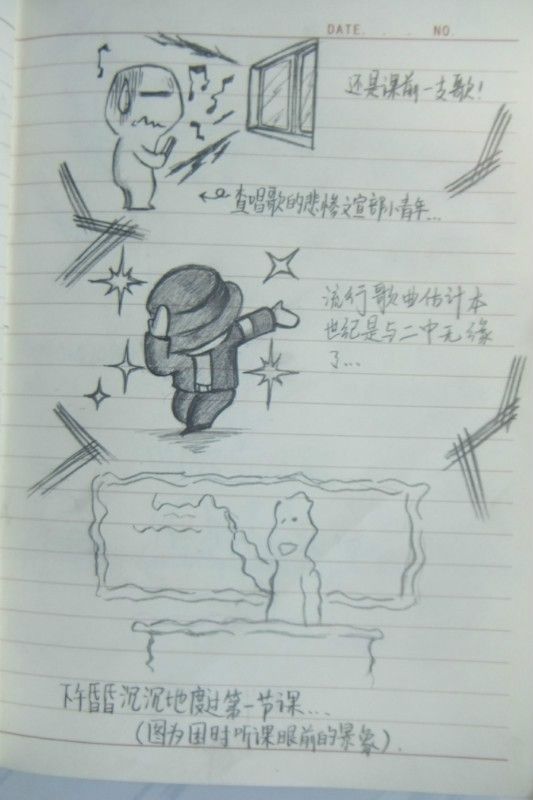 DATE. . . . NO
还是课前一支歌!
查唱歌的悲惨文宣部小青年...
流行歌曲估计本
世纪是与二中无缘
了...
下午昏昏沉沉地度过第一节课...
(图为困时听课眼前的景象).